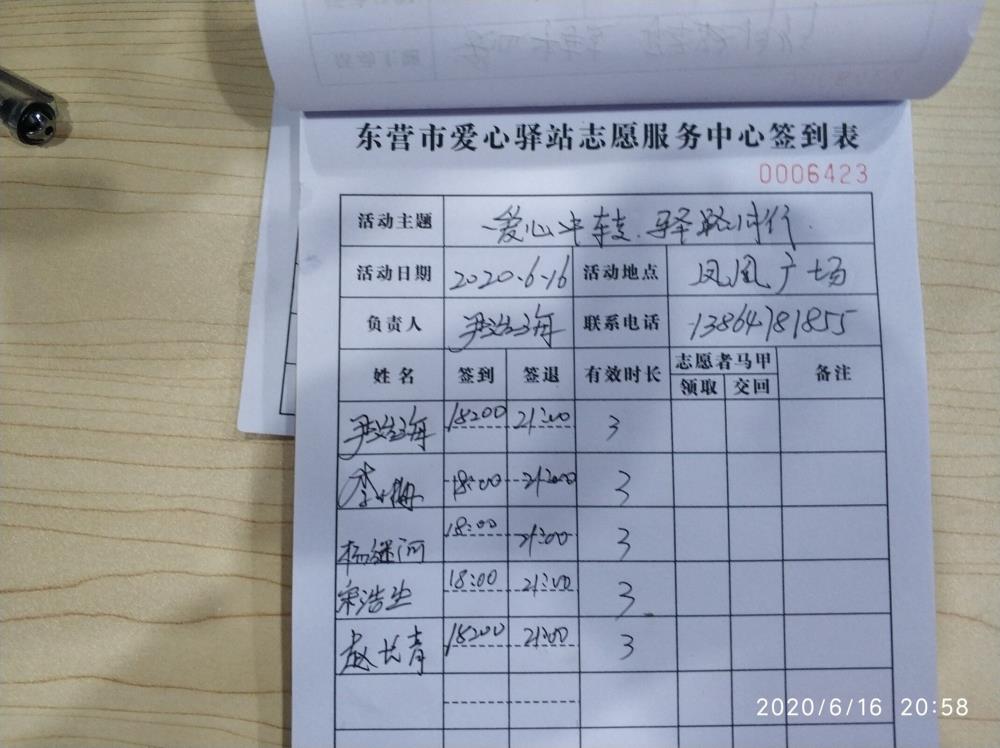 东营市爱心驿站志愿服务中心签到表
0006423
活动主题 爱心中转.驿路同行.
活动日期 2020.6.16 活动地点 凤凰广场
负责人 联系电话 13864781855
姓名 签到 签退 有效时长 志愿者马甲 备注
领取 交回
18:00 21:00 3
李 18:00 21:00 3
杨继河 18:00 21:00 3
宋浩生 18:00 21:00 3
赵长青 18:00 21:00 3
2020/6/16 20:58